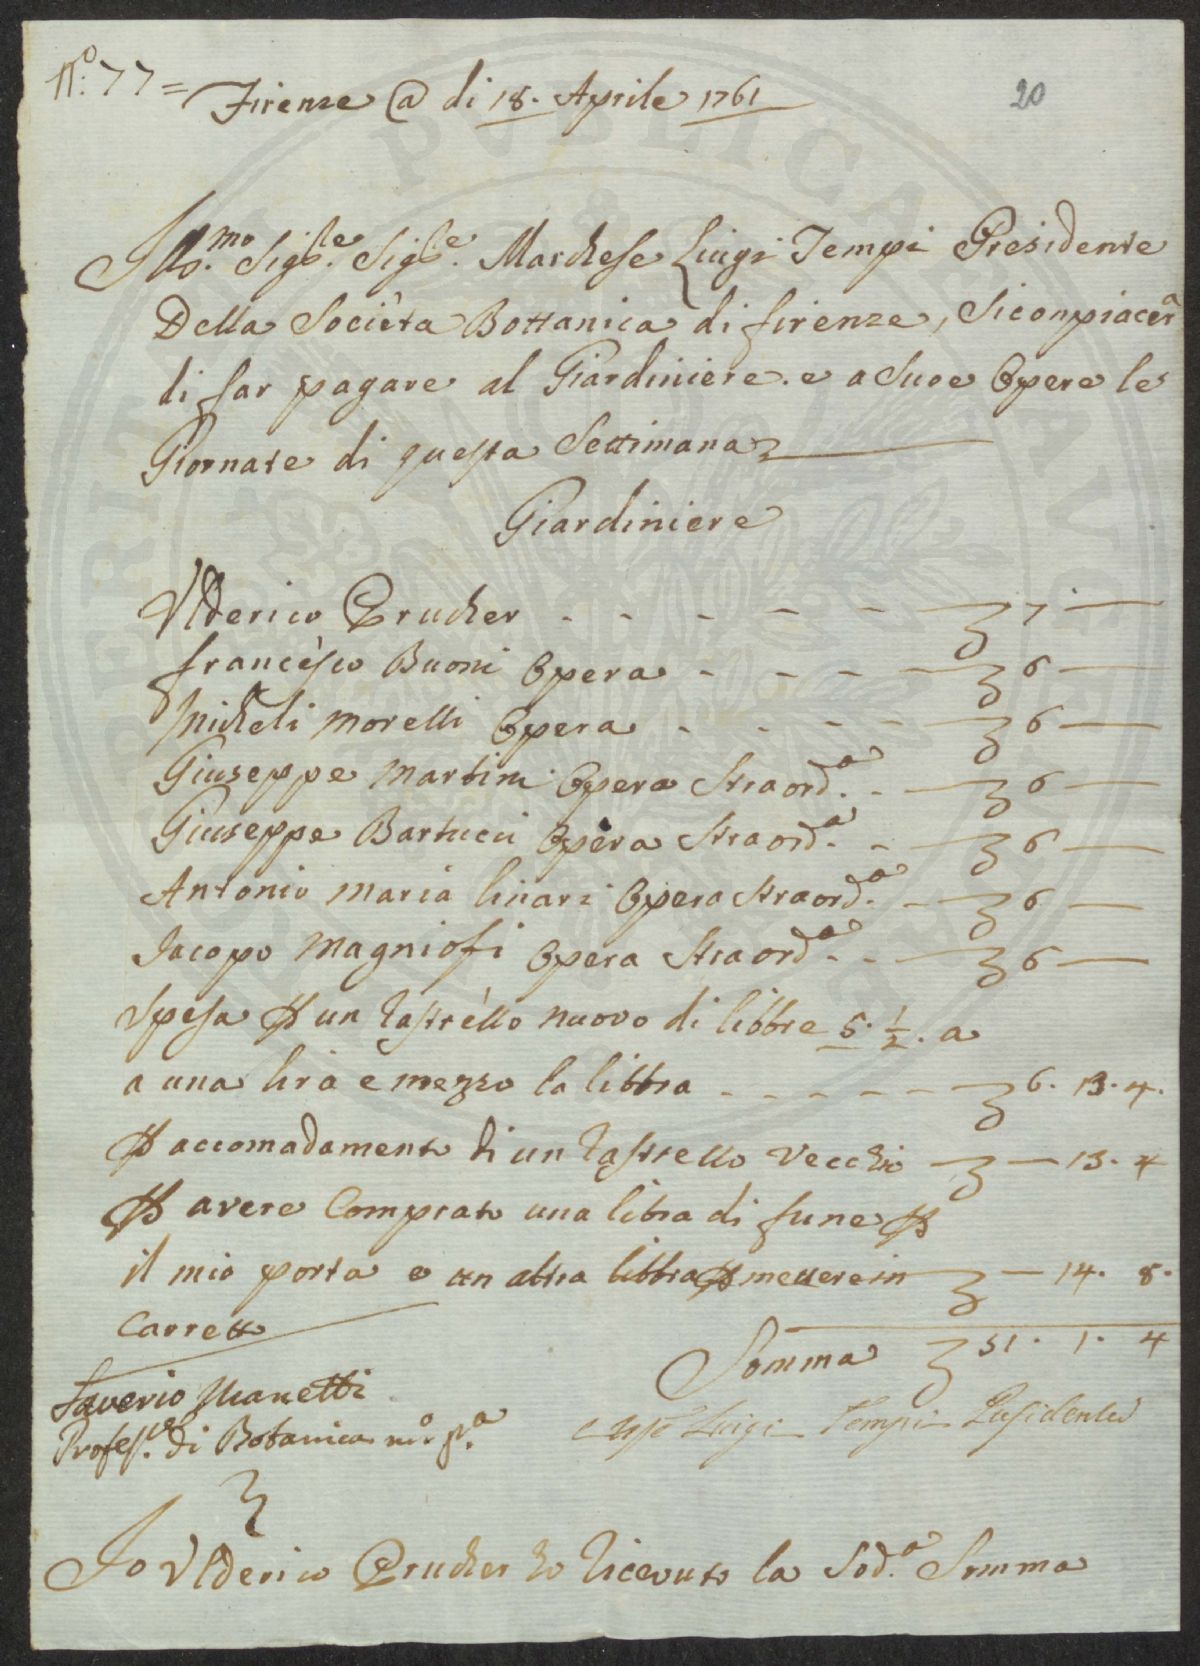 N.º 77 =
20
Firenze @ di 18. Aprile 1761
Ill.mo Sig.le Sig.le Marchese Luigi Tempi Presidente
Della Socièta Bottanica di firenze, Si conpiacerà
di far pagare al Giardiniere e a Suoe Opere le
Giornate di questa Settimana
Giardiniere
Ulderico Prucher - - - - - 7 —
francèsco Buoni Opera - - - - 6 —
Micheli Morelli Opera - - - - 6 —
Giuseppe Martini Opera Straord.a - 6 —
Giuseppe Bartucci Opera Straord.a - 6 —
Antonio Maria linari Opera Straord.a - 6 —
Jacopo Magniofi Opera Straord.a - - 6 —
Spesa p un rastrèllo nuovo di libbre 5. 1/2. a
a una lira e mezzo la libbra - - - - - - 6. 13. 4.
p accomadamento di un rastrello vecchio — 13. 4
p avere Comprato una libra di fune p
il mio porta e un altra libbra p mettere in — 14. 8.
Carretto
Somma 51. 1. 4
Saverio Manetti
Profess.re di Botanica m.o p.a
Luigi Tempi Presidente
Io Ulderico Prucher ho ricevuto la Sod.a Somma